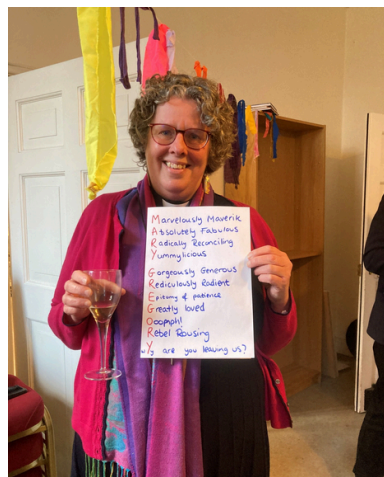 Marvelously Maverik
Absolutely Fabulous
Radically Reconciling
Yummylicious
Gorgeously Generous
Rediculously Radient
Epitomy of patience
Greatly loved
Ooomph!
Rebel Rousing
wY are you leaving us?